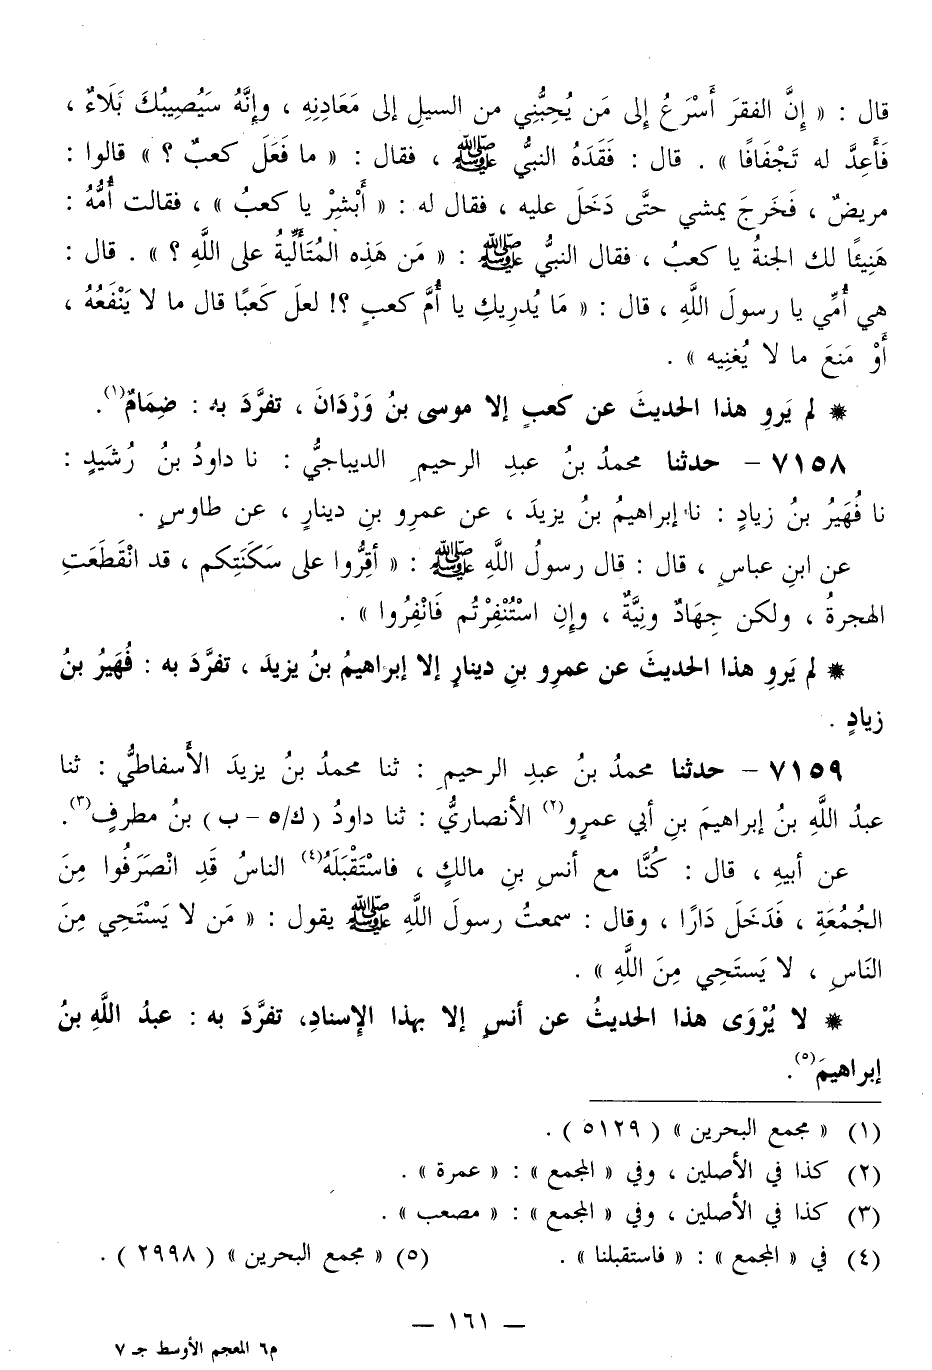 قال : « إِنَّ الفقرَ أَسْرَعُ إِلى مَن يُحِبُّنِي من السيلِ إلى مَعَادِنِهِ ، وإِنَّهُ سَيُصِيبُكَ بَلَاءٌ ،
فَأَعِدَّ له تَجْفَافًا » . قال : فَفَقَدَهُ النبيُّ ﷺ ، فقال : « ما فَعَلَ كعبٌ ؟ » قالوا :
مريضٌ ، فَخَرجَ يمشي حتَّى دَخَلَ عليه ، فقال له : « أَبْشِرْ يا كعبُ » ، فقالت أُمُّهُ :
هَنِيئًا لك الجنةُ يا كعبُ ، فقال النبيُّ ﷺ : « مَن هَذِه المُتَأَلِّيةُ على اللَّهِ ؟ » . قال :
هي أُمِّي يا رسولَ اللَّهِ ، قال : « مَا يُدرِيكِ يا أُمَّ كعبٍ ؟! لعلَ كَعبًا قال ما لا يَنْفَعُهُ ،
أَوْ مَنعَ ما لا يُغنِيه » .
* لم يَروِ هذا الحديثَ عن كعبٍ إلا موسى بنُ وَرْدَانَ ، تفرَّدَ به : ضِمَامٌ(١).
٧١٥٨ – حدثنا محمدُ بنُ عبدِ الرحيمِ الديباجيُّ : نا داودُ بنُ رُشَيدٍ :
نا فُهَيرُ بنُ زيادٍ : نا إبراهيمُ بنُ يزيدَ ، عن عمرِو بنِ دينارٍ ، عن طاوسٍ .
عن ابنِ عباسٍ ، قال : قال رسولُ اللَّهِ ﷺ : « أقِرُّوا على سَكَنَتِكم ، قد انْقَطَعَتِ
الهجرةُ ، ولكن جِهَادٌ ونِيَّةٌ ، وإِنِ اسْتُنْفِرْتُم فَانْفِرُوا » .
* لم يَروِ هذا الحديثَ عن عمرِو بنِ دينارٍ إلا إبراهيمُ بنُ يزيدَ ، تفرَّدَ به : فُهَيرُ بنُ
زيادٍ .
٧١٥٩ – حدثنا محمدُ بنُ عبدِ الرحيمِ : ثنا محمدُ بنُ يزيدَ الأَسفاطيُّ : ثنا
عبدُ اللَّهِ بنُ إبراهيمَ بنِ أبي عمرٍو(٢) الأنصاريُّ : ثنا داودُ (ك/٥ – ب) بنُ مطرفٍ(٣).
عن أبيهِ ، قال : كُنَّا مع أنسِ بنِ مالكٍ ، فاسْتَقْبَلَهُ(٤) الناسُ قَدِ انْصَرَفُوا مِنَ
الجُمُعَةِ ، فَدَخَلَ دَارًا ، وقال : سمعتُ رسولَ اللَّهِ ﷺ يقول : « مَن لا يَسْتَحِي مِنَ
النَاسِ ، لا يَستَحِي مِنَ اللَّهِ » .
* لا يُرْوَى هذا الحديثُ عن أنسٍ إلا بهذا الإسنادِ، تفرَّدَ به : عبدُ اللَّهِ بنُ
إبراهيمَ(٥).
(١) « مجمع البحرين » ( ٥١٢٩ ) .
(٢) كذا في الأصلين ، وفي « المجمع » : « عمرة » .
(٣) كذا في الأصلين ، وفي « المجمع » : « مصعب » .
(٤) في « المجمع » : « فاستقبلنا » . (٥) « مجمع البحرين » ( ٢٩٩٨ ) .
— ١٦١ —
م٦ المعجم الأوسط جـ ٧